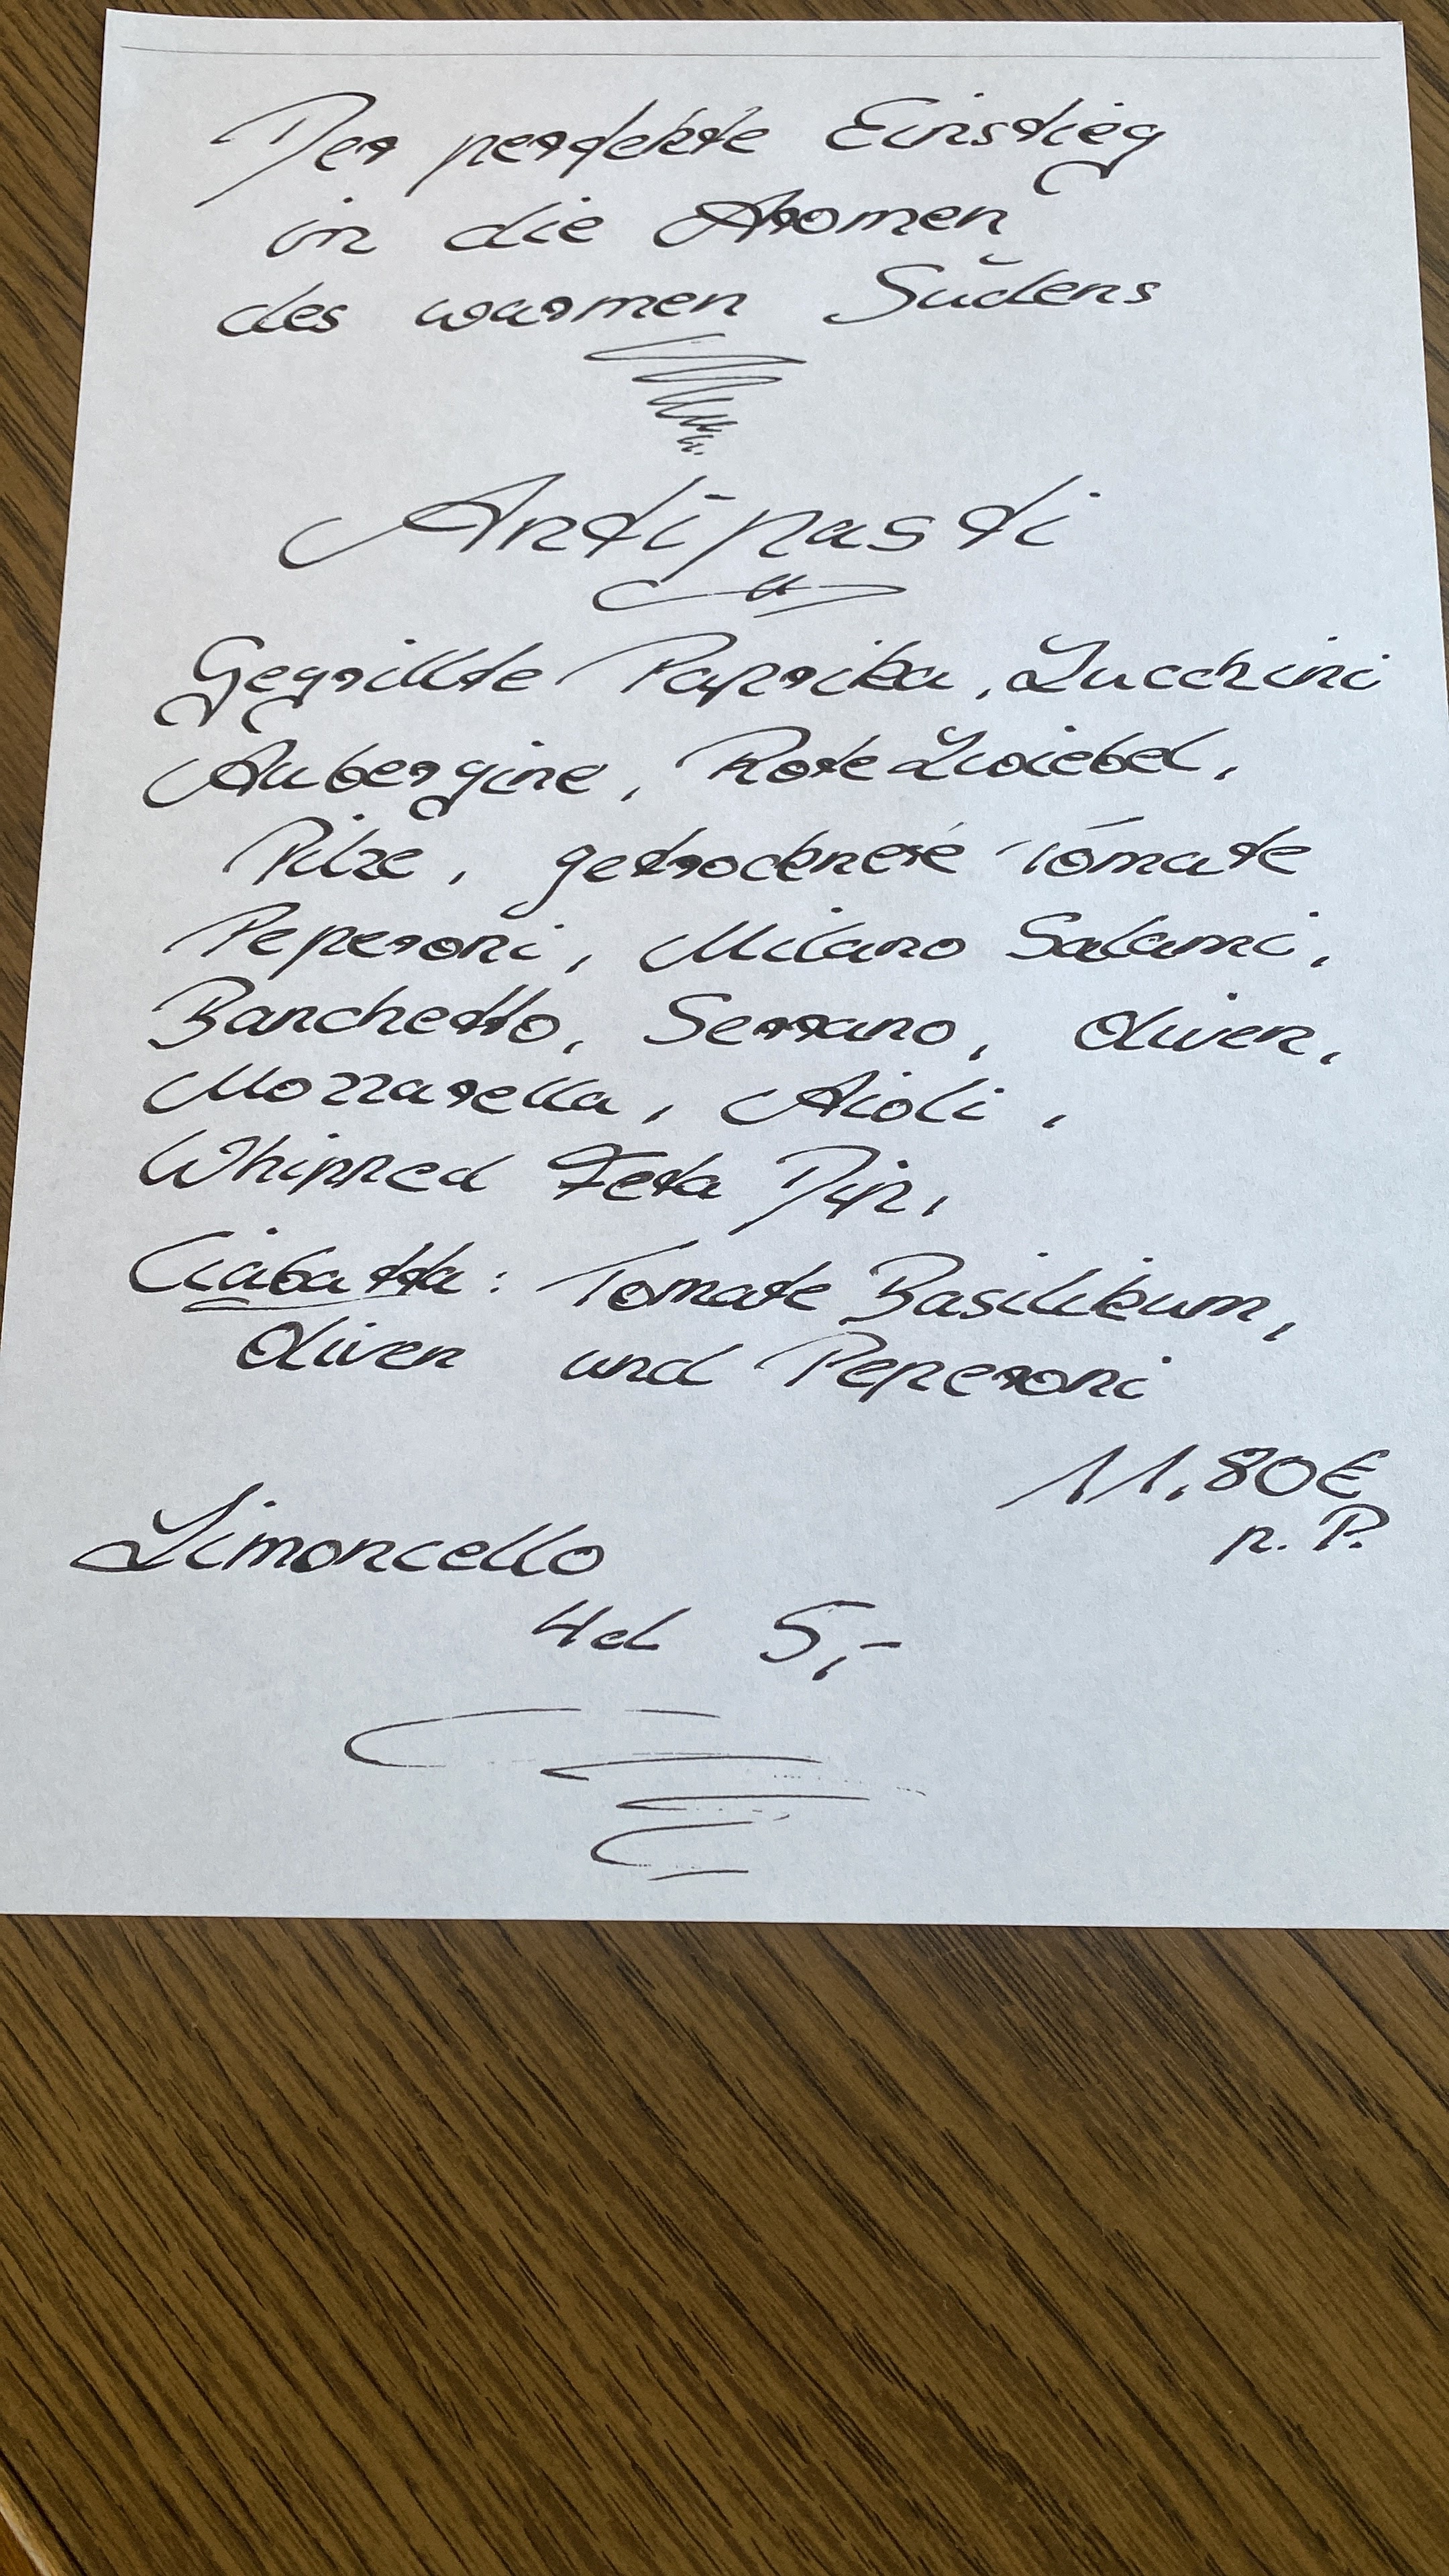 Der perfekte Einstieg
in die Aromen
des warmen Südens
Antipasti
Gegrillte Paprika, Zucchini
Aubergine, Rote Zwiebel,
Pilze, getrocknete Tomate
Peperoni, Milano Salami,
Banchetto, Serrano, Oliven,
Mozzarella, Aioli,
Whipped Feta Dip,
Ciabatta: Tomate Basilikum,
Oliven und Peperoni
11,80€
p. P.
Limoncello
4cl 5,-